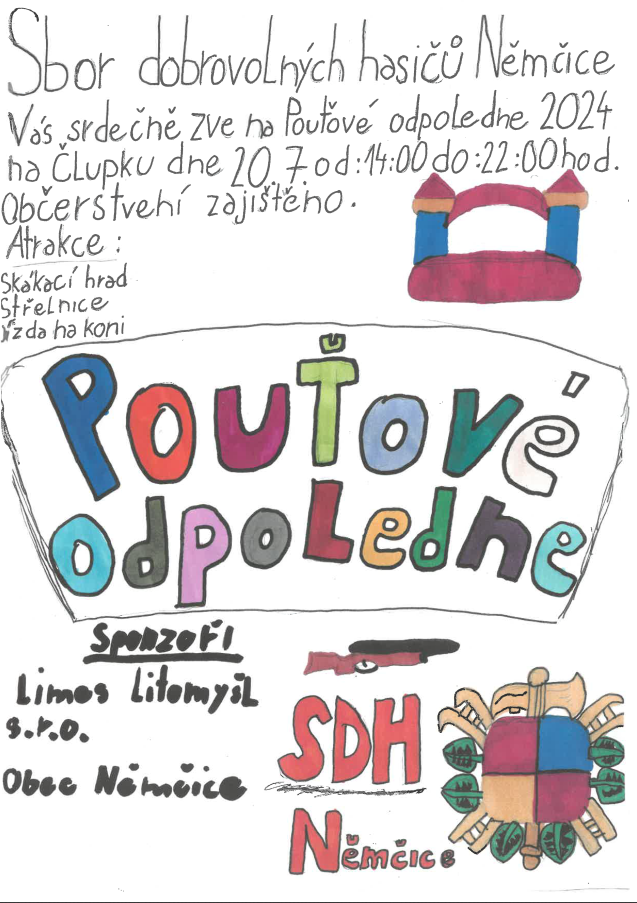 Sbor dobrovolných hasičů Němčice
Vás srdečně zve na Pouťové odpoledne 2024
na Člupku dne 20.7.od:14:00do:22:00hod.
Občerstvení zajištěno.
Atrakce:
Skákací hrad
Střelnice
Jízda na koni
Pouťové
odpoledne
Sponzoři
Limos Litomyšl
s.r.o.
Obec Němčice
SDH
Němčice